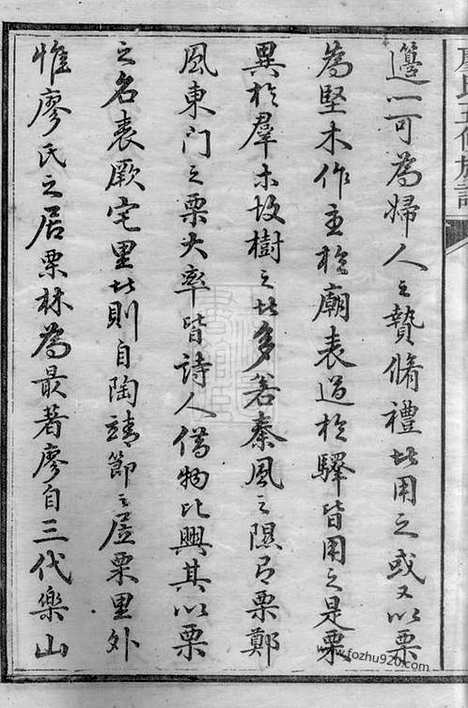 廖氏五修族譜
籩一可為婦人之贄脩禮此用之或又以栗
為堅木作主於廟表道於驛皆用之是栗
異於羣木故樹之此多若秦風之隰有栗鄭
風東门之栗大率皆詩人借物比興其以栗
之名表厥宅里此則自陶靖節之居栗里外
惟廖氏之居栗林為最著廖自三代樂山
www.fozhu920.com